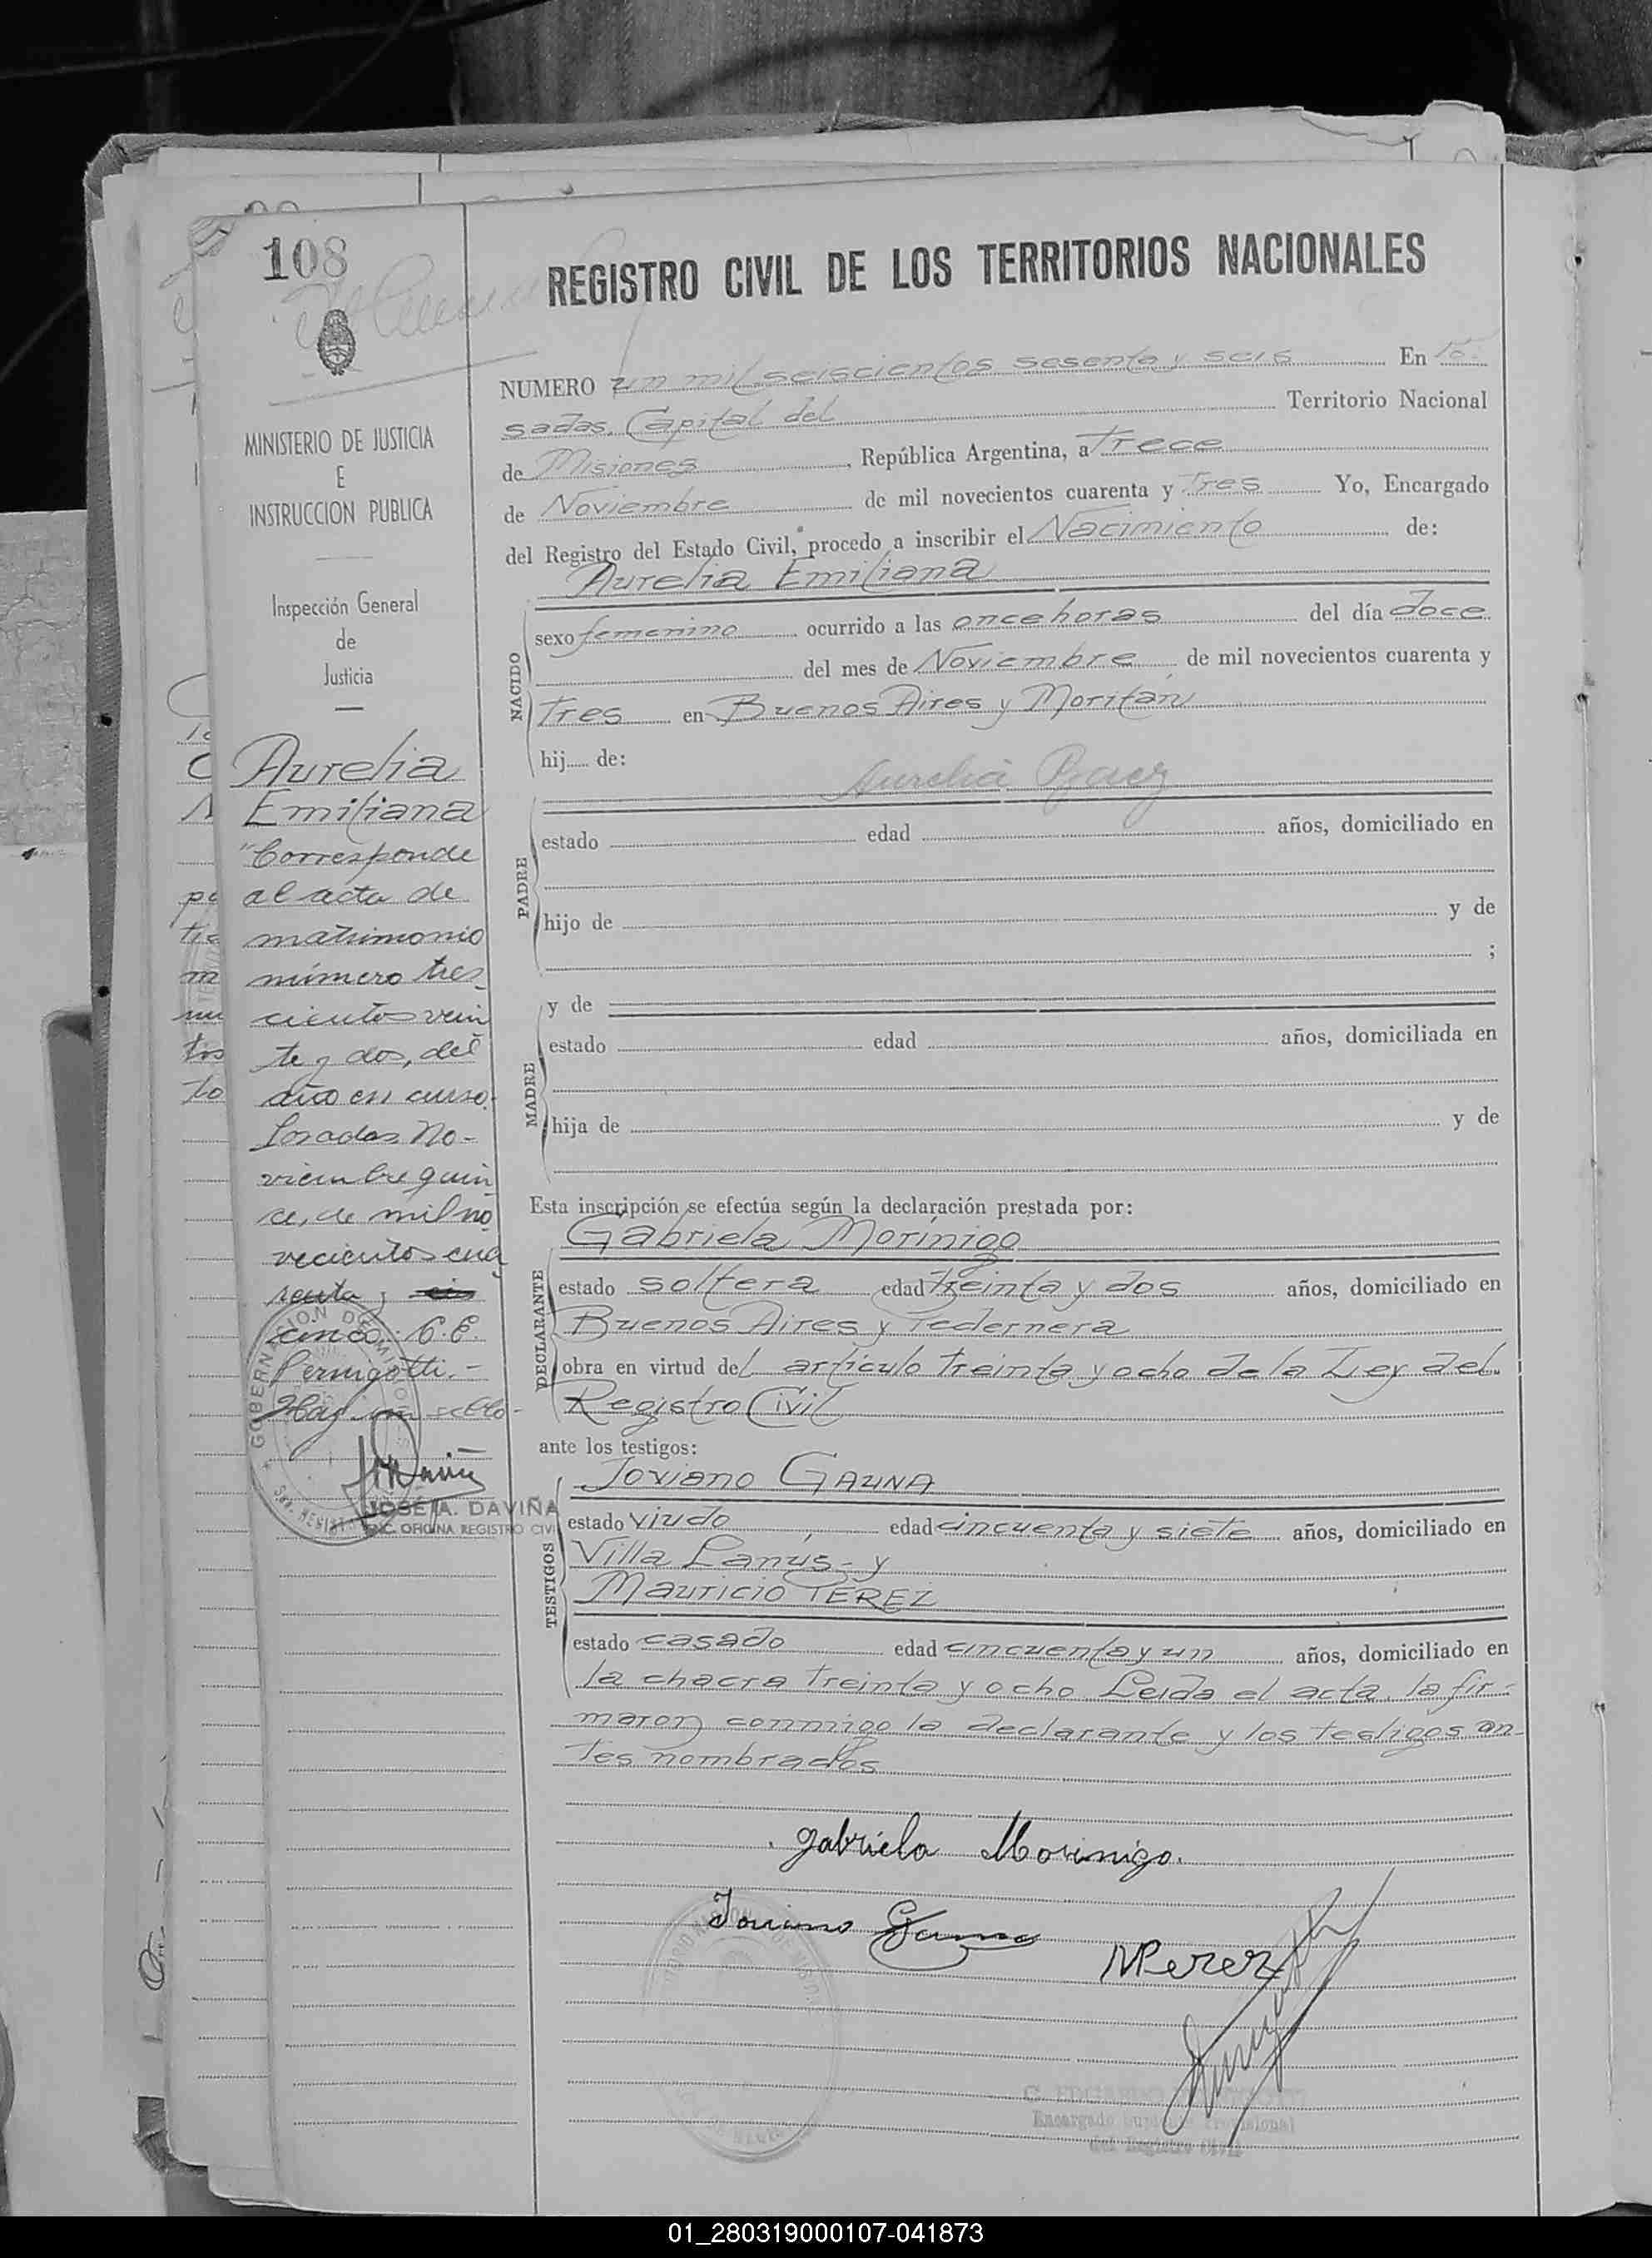 108
MINISTERIO DE JUSTICIA
E
INSTRUCCION PUBLICA
Inspección General
de
Justicia
Aurelia
Emiliana
"Corresponde
al acta de
matrimonio
número tres
cientos vein
te y dos, del
año en curso.
Posadas No-
viembre quin
ce, de mil no
vecientos cua
renta y
cinco: C. E.
Pernigotti.-
Hay un sello-
JOSÉ A. DAVIÑA
ENC. OFICINA REGISTRO CIVIL
REGISTRO CIVIL DE LOS TERRITORIOS NACIONALES
NUMERO un mil seiscientos sesenta y seis En Po-
sadas, Capital del Territorio Nacional
de Misiones, República Argentina, a trece
de Noviembre de mil novecientos cuarenta y tres Yo, Encargado
del Registro del Estado Civil, procedo a inscribir el Nacimiento de:
Aurelia Emiliana
NACIDO
sexo femenino ocurrido a las once horas del día doce
del mes de Noviembre de mil novecientos cuarenta y
tres en Buenos Aires y Moritán
hij de:
Aurelia Baez
PADRE
estado edad años, domiciliado en
hijo de y de
;
MADRE
y de
estado edad años, domiciliada en
hija de y de
Esta inscripción se efectúa según la declaración prestada por:
DECLARANTE
Gabriela Morínigo
estado soltera edad treinta y dos años, domiciliado en
Buenos Aires y Pedernera
obra en virtud del artículo treinta y ocho de la Ley del
Registro Civil
ante los testigos:
TESTIGOS
Joviano GAUNA
estado viudo edad cincuenta y siete años, domiciliado en
Villa Lanús- y
Mauricio PEREZ
estado casado edad cincuenta y un años, domiciliado en
la chacra treinta y ocho. Leída el acta, la fir-
maron conmigo la declarante y los testigos an-
tes nombrados
Gabriela Morinigo.
Joviano Gauna
MPerez
Encargado Suplente Provisional
del Registro Civil
01_280319000107-041873